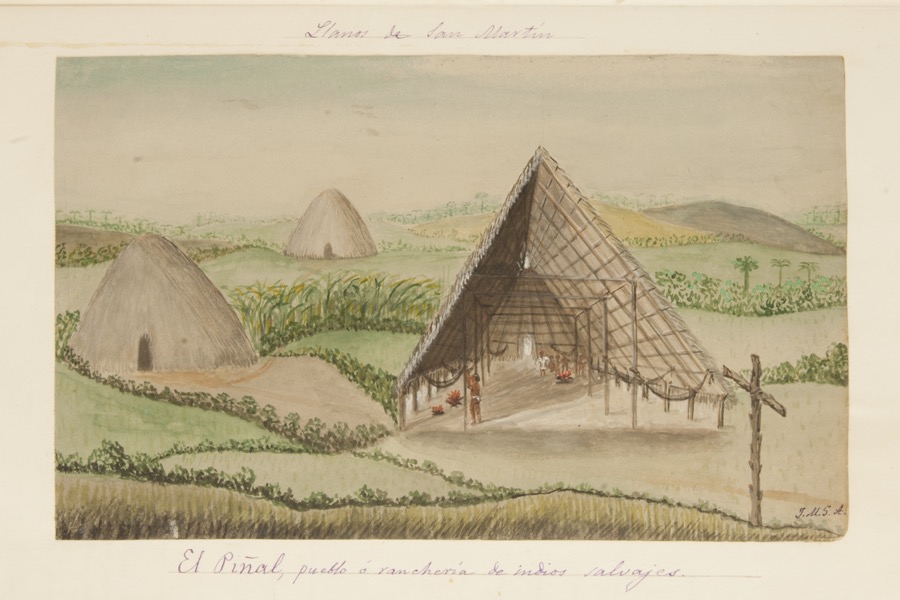 Llanos de San Martín
J.M.G.A.
El Piñal, pueblo ó ranchería de indios salvajes.